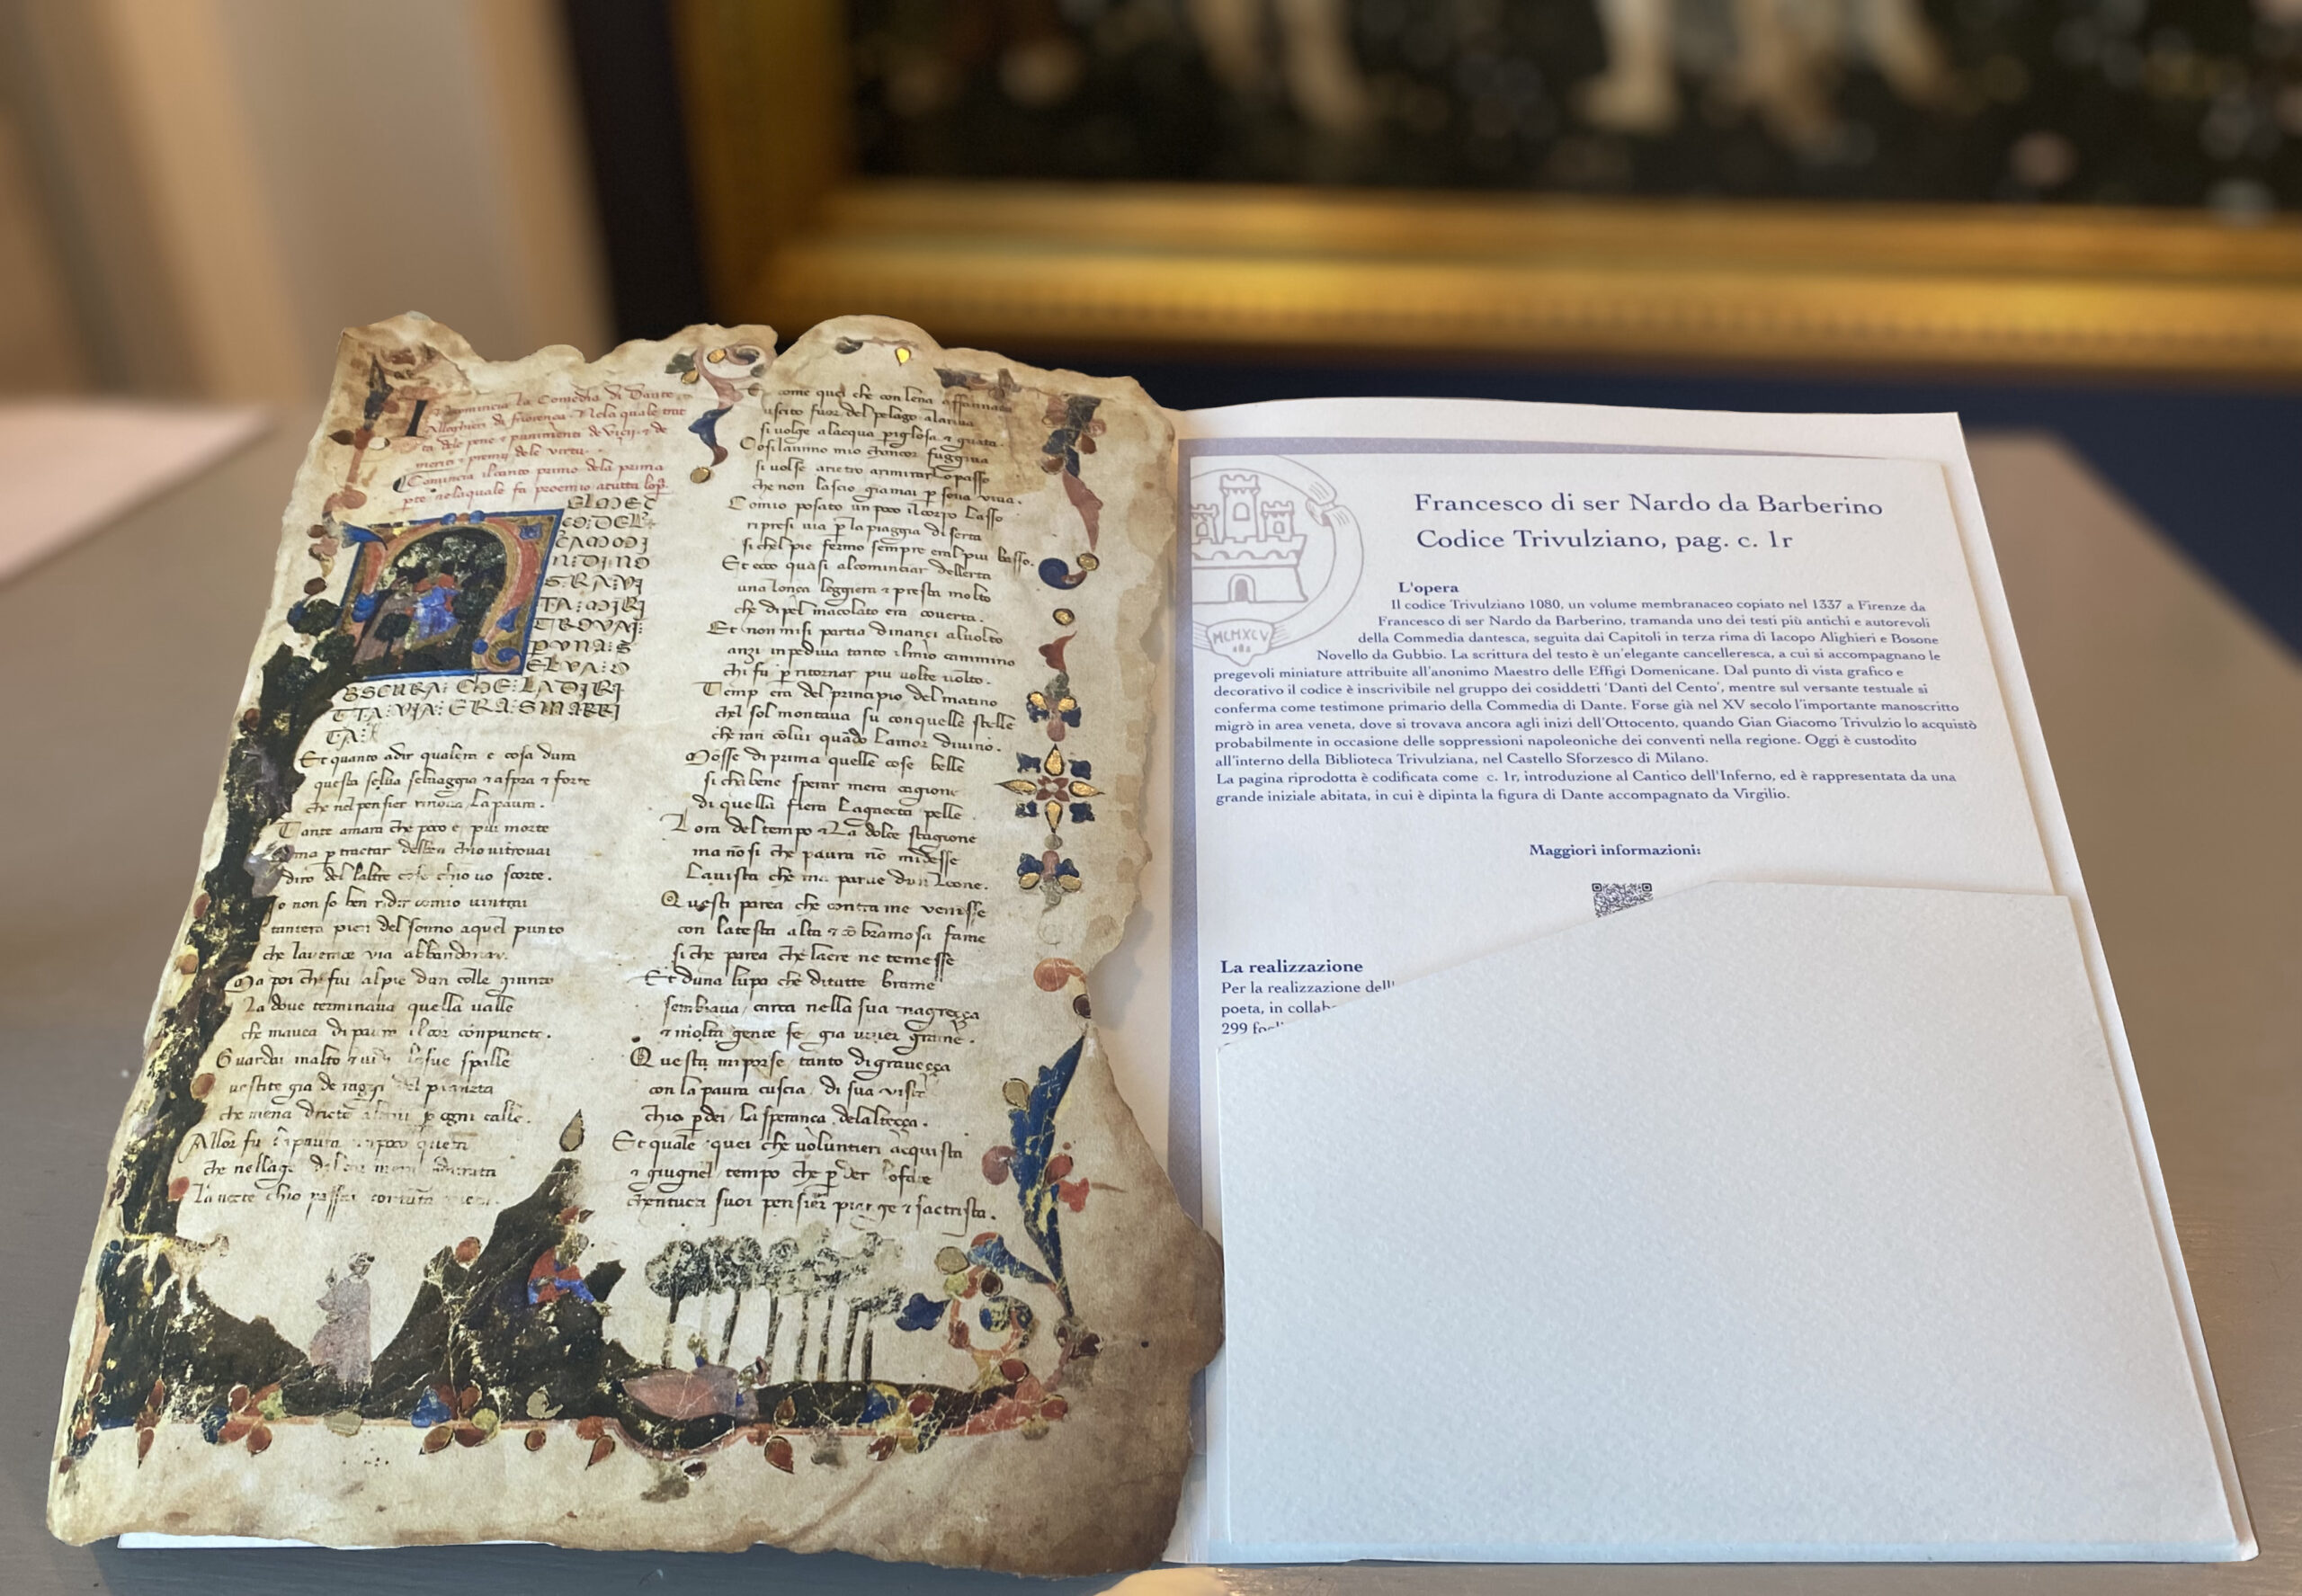 Incomincia la Comedia di Dante
Allaghieri di fiorença. Nela quale trat
ta dele pene & punimenti de viçij & de
meriti & premij dele virtu.
Comincia il canto primo dela prima
pte nelaquale fa proemio atutta lop̃.
NELMEÇ
ÇO:DEL
CAMOMI
N:DI:NO
SRA:VI
TA:MIRI
TROVAI:
PVNA:S
ELVA:O
BSCVRA: CHE:LADIRI
TTA:VIA:ERA:SMARRI
TA:
Et quanto adir qualera e cosa dura
questa selua seluaggia & aspra & forte
che nel pensier rinoua la paura.
Tante amara che poco e piu morte
ma p tractar delben chio uitrouai
diro del laltre cose chio uo scorte.
Io non so ben ridir comio uintrai
tantera pien del sonno aquel punto
che lauerace via abbandonai.
Ma poi che fui alpie dun colle giunto
La doue terminaua quella valle
che mauea di paura il cor conpuncto.
Guardai inalto & uidi le sue spalle
uestite gia de raggi del pianeta
che mena dricto altrui p ogni calle.
Allor fu la paura un poco queta
che nellago del cor mera durata
La nocte chio passai con tanta pieta.
Et come quei che con lena affannata
uscito fuor del pelago alariua
si volge alacqua pigliosa & guata.
Cosi lanimo mio chancor fuggiua
si volse arietro arimirar lo passo
che non lascio giamai p sona viua.
Comio posato un poco il corpo lasso
ripresi uia p la piaggia diserta
si chel pie fermo sempre eral piu basso.
Et ecco quasi alcominciar dellerta
una lonça leggiera & presta molto
che dipel maculato era couerta.
Et non misi partia dinançi aluolto
anzi inpediua tanto ilmio cammino
chi fu p ritornar piu volte volto.
Temp era del principio del matino
chel sol montaua su con quelle stelle
cheran colui quãdo lamor diuino.
Mosse di prima quelle cose belle
si cha bene sperar mera cagione
di quella fiera lagaecta pelle.
Lora del tempo & la dolce stagione
ma nõ si che paura nõ midesse
Lauista che ma parue dun leone.
Questi parea che contra me venisse
con latesta alta & cõ bramosa fame
si che parea che laere ne temesse
Et duna lupa che ditutte brame
sembiaua carca nella sua magreçça
& molta gente fe gia viuer grame.
Questa miporse tanto digraueçça
con la paura cuscia di sua vista
chio pdei la sperança delalteçça.
Et quale quei che uoluntieri acquista
& giugnel tempo che p der lo face
chentucti suoi pensier piange & sactrista.
Francesco di ser Nardo da Barberino
Codice Trivulziano, pag. c. 1r
MCMXCV
L'opera
Il codice Trivulziano 1080, un volume membranaceo copiato nel 1337 a Firenze da
Francesco di ser Nardo da Barberino, tramanda uno dei testi più antichi e autorevoli
della Commedia dantesca, seguita dai Capitoli in terza rima di Iacopo Alighieri e Bosone
Novello da Gubbio. La scrittura del testo è un'elegante cancelleresca, a cui si accompagnano le
pregevoli miniature attribuite all'anonimo Maestro delle Effigi Domenicane. Dal punto di vista grafico e
decorativo il codice è inscrivibile nel gruppo dei cosiddetti 'Danti del Cento', mentre sul versante testuale si
conferma come testimone primario della Commedia di Dante. Forse già nel XV secolo l'importante manoscritto
migrò in area veneta, dove si trovava ancora agli inizi dell'Ottocento, quando Gian Giacomo Trivulzio lo acquistò
probabilmente in occasione delle soppressioni napoleoniche dei conventi nella regione. Oggi è custodito
all'interno della Biblioteca Trivulziana, nel Castello Sforzesco di Milano.
La pagina riprodotta è codificata come c. 1r, introduzione al Cantico dell'Inferno, ed è rappresentata da una
grande iniziale abitata, in cui è dipinta la figura di Dante accompagnato da Virgilio.
Maggiori informazioni:
La realizzazione
Per la realizzazione dell'
poeta, in collab
299 fogli